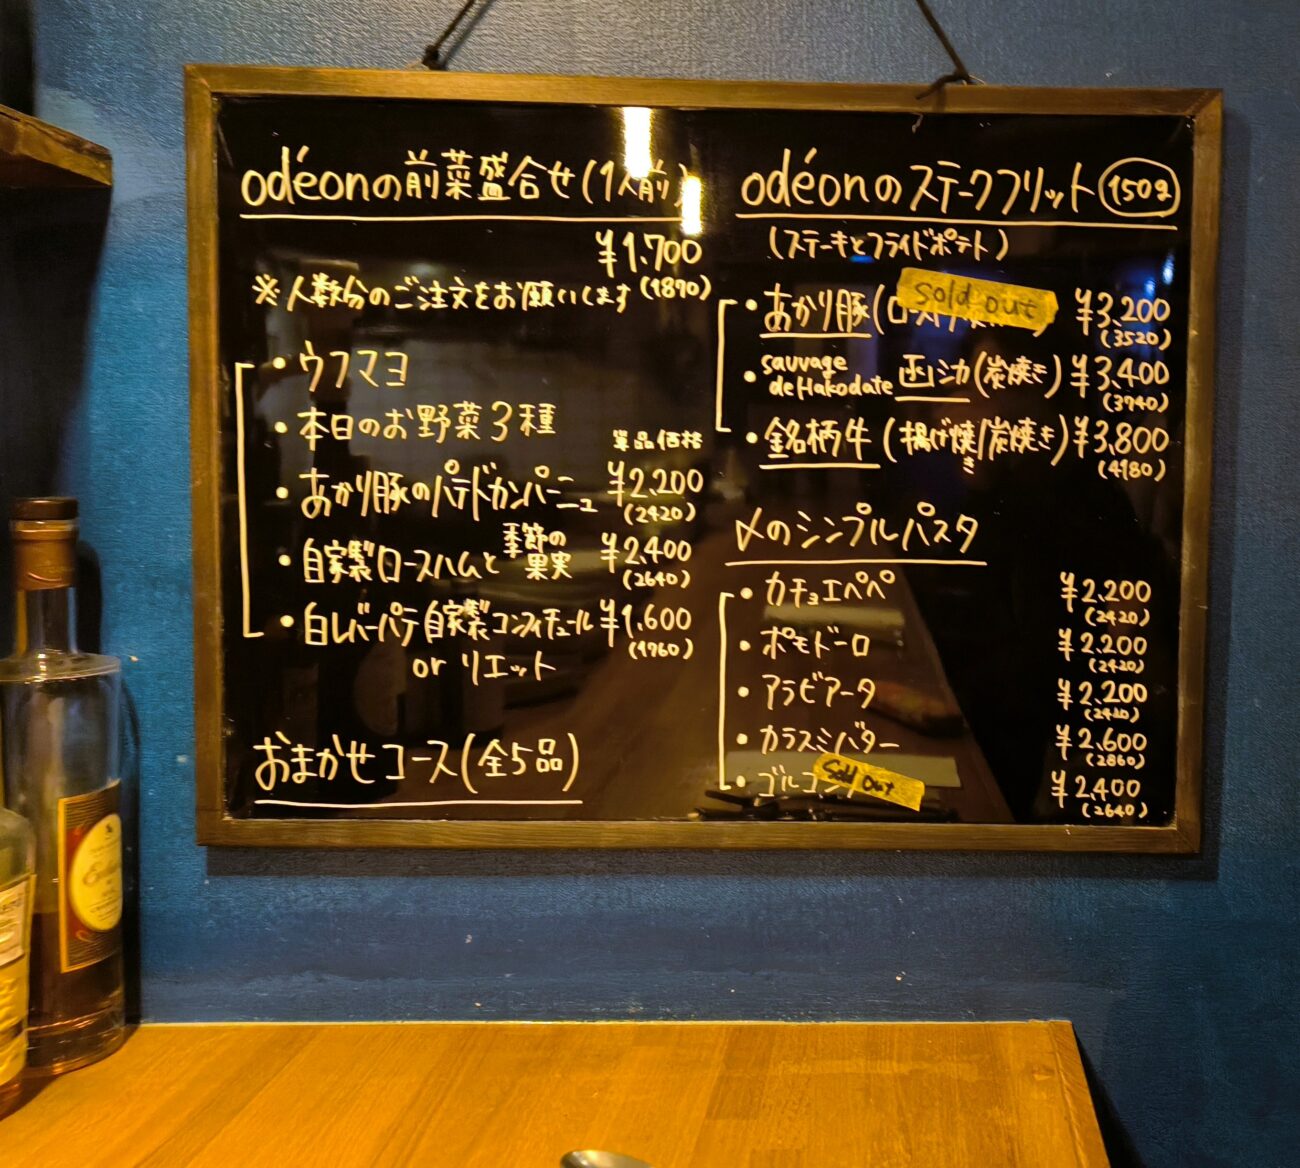 odéonの前菜盛合せ(1人前)
¥1,700
(1870)
※人数分のご注文をお願いします
・ウフマヨ
・本日のお野菜3種
単品価格
・あかり豚のパテドカンパーニュ ¥2,200
(2420)
・自家製ロースハムと季節の果実 ¥2,400
(2640)
・白レバーパテ自家製コンフィチュール ¥1,600
(1760)
or リエット
おまかせコース(全5品)
odéonのステークフリット 150g
(ステーキとフライドポテト)
・あかり豚( Sold out ¥3,200
(3520)
・sauvage de Hakodate 函シカ(炭焼き) ¥3,400
(3740)
・銘柄牛(揚げ焼き/炭焼き) ¥3,800
(4180)
〆のシンプルパスタ
・カチョエペペ ¥2,200
(2420)
・ポモドーロ ¥2,200
(2420)
・アラビアータ ¥2,200
(2420)
・カラスミバター ¥2,600
(2860)
・ゴルゴン Sold out ¥2,400
(2640)